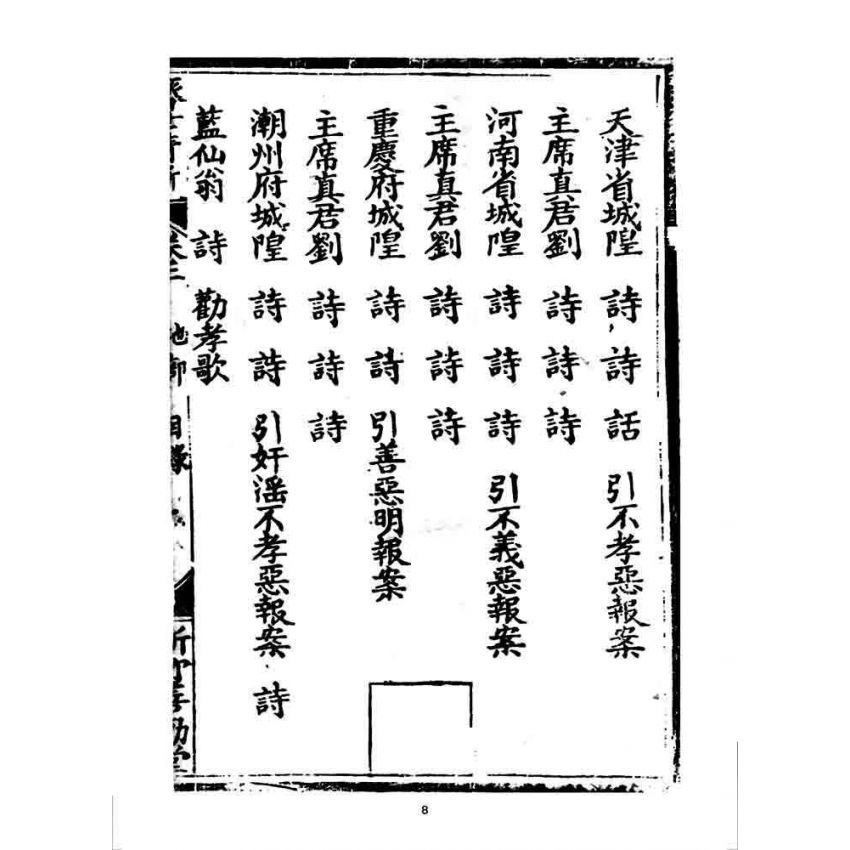 天津省城隍 詩 詩 話 引不孝惡報案
主席真君劉 詩 詩 詩
河南省城隍 詩 詩 詩 引不義惡報案
主席真君劉 詩 詩 詩
重慶府城隍 詩 詩 引善惡明報案
主席真君劉 詩 詩 詩
潮州府城隍 詩 詩 引奸滛不孝惡報案 詩
藍仙翁 詩 勸孝歌
卷三 目錄
8